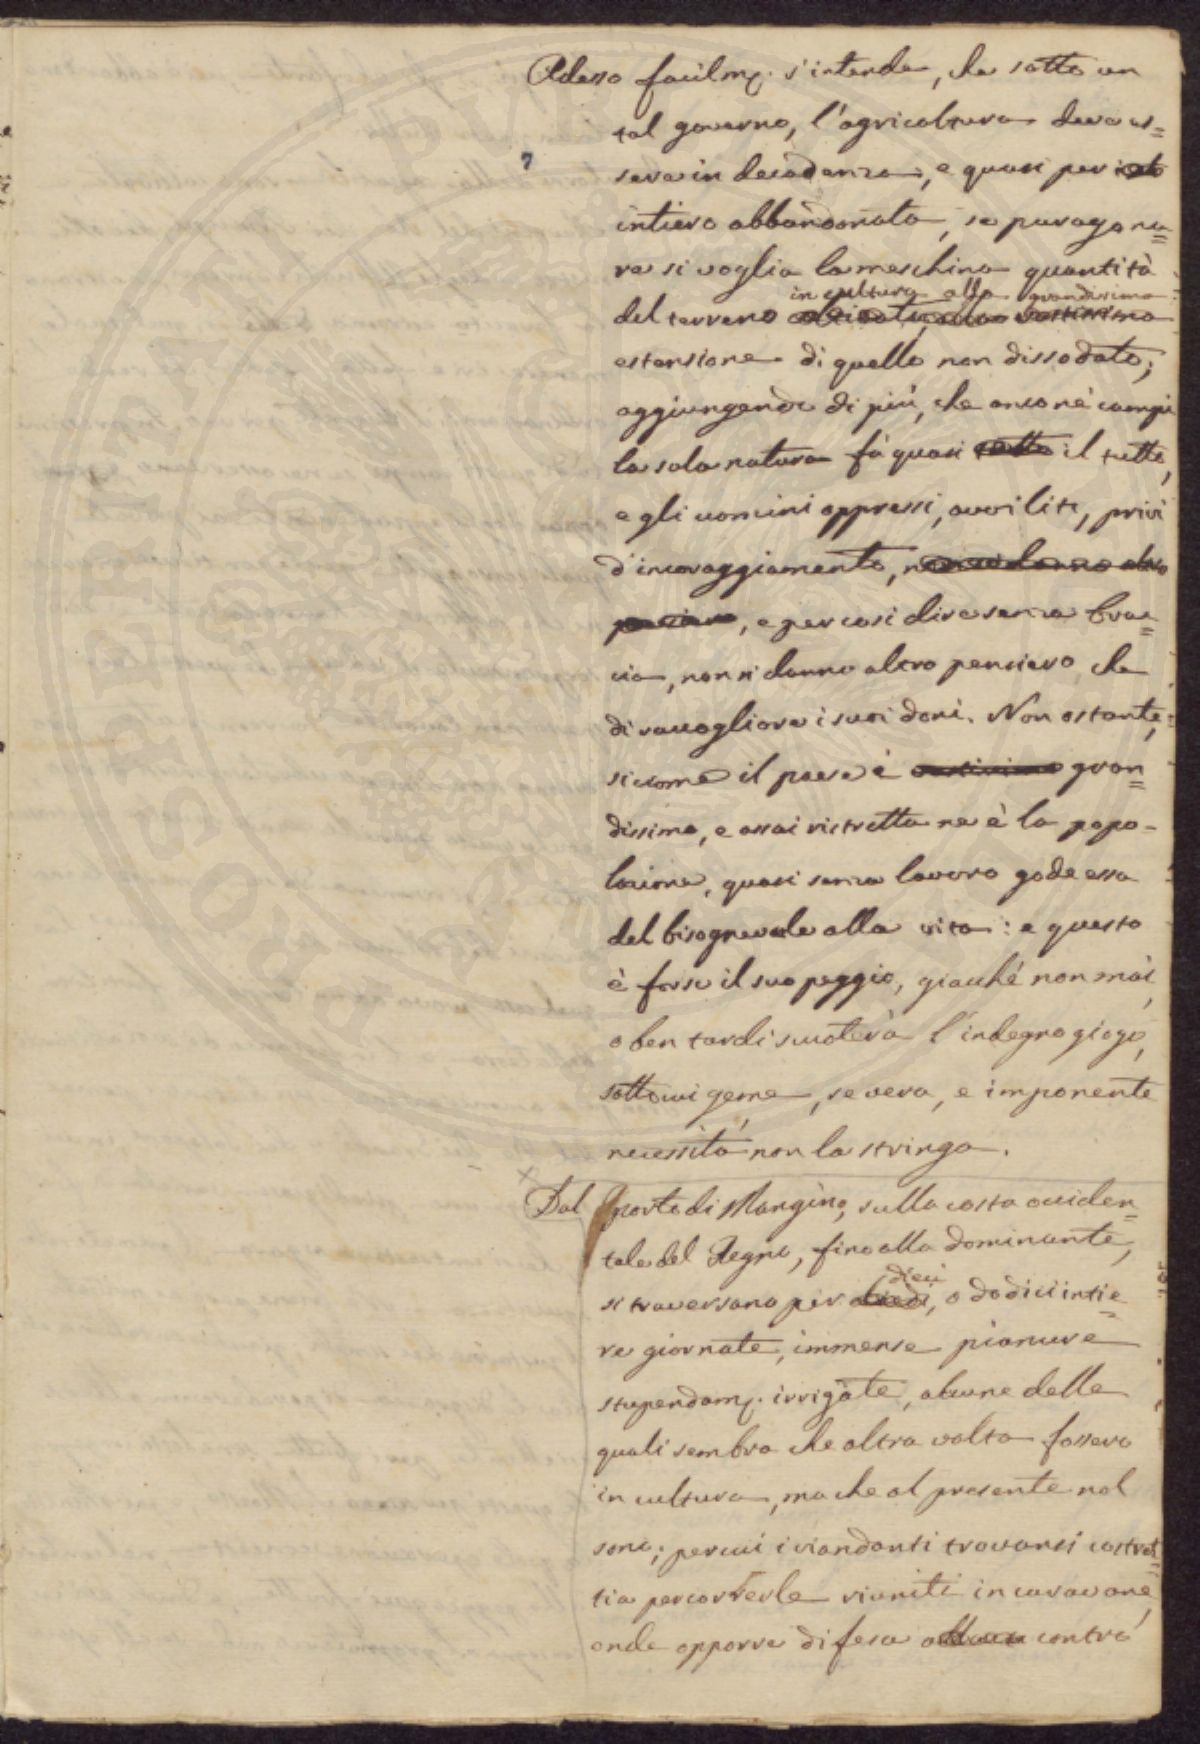 Adesso facilmę. s'intende, che sotto un
tal governo, l'agricoltura deve es=
7
sere in decadenza, e quasi per
intiero abbandonata, se parago na=
re si voglia la meschina quantità
in cultura alla grandissima
del terreno coltivato, alla vastissima
estensione di quello non dissodato;
aggiungendo di più, che anco nè campi
la sola natura fà quasi tutto il tutto,
e gli uomini oppressi, avviliti, privi
d'incoraggiamento, non si danno altro
pensiero, e per così dire senza brac=
cia, non si danno altro pensiero che
di raccogliere i suoi doni. Non ostante,
siccome il paese è vastissimo gran=
dissimo, e assai ristretta ne è la popo-
lazione, quasi senza lavoro gode essa
del bisognevole alla vita: e questo
è forse il suo peggio, giacché non mai,
o ben tardi scuoterà l'indegno giogo,
sotto cui geme, se vera, e imponente
necessità non la stringa.
Dal porto di Mangino, sulla costa occiden=
tale del Regno, fino alla dominante,
dieci
si traversano per dieci, o dodici intie=
re giornate, immense pianure
stupendamę. irrigate, alcune delle
quali sembra che altra volta fossero
in cultura, ma che al presente nol
sono; per cui i viandanti trovansi costret=
ti a percorrerle riuniti in caravane,
onde opporre difesa contro
PROPRIETATI PUBLICA